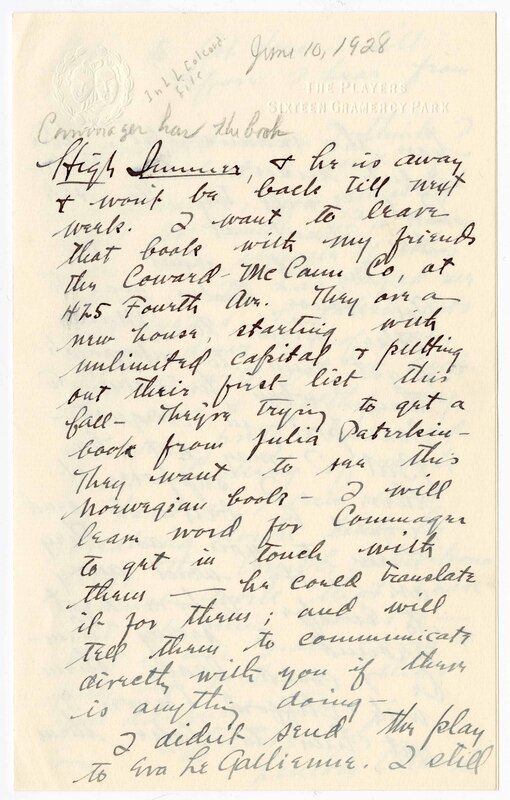 June 10, 1928
In L. L. Colcord
file
THE PLAYERS
SIXTEEN GRAMERCY PARK
Commager has the book
High Summer, & he is away
& won't be back till next
week. I want to leave
that book with my friends
the Coward-McCann Co, at
425 Fourth Ave. They are a
new house, starting with
unlimited capital & putting
out their first list this
fall— They're trying to get a
book from Julia Peterkin—
They want to see this
Norwegian book— I will
leave word for Commager
to get in touch with
them — he could translate
it for them; and will
tell them to communicate
directly with you if there
is anything doing—
I didn't send the play
to Eva Le Gallienne. I still